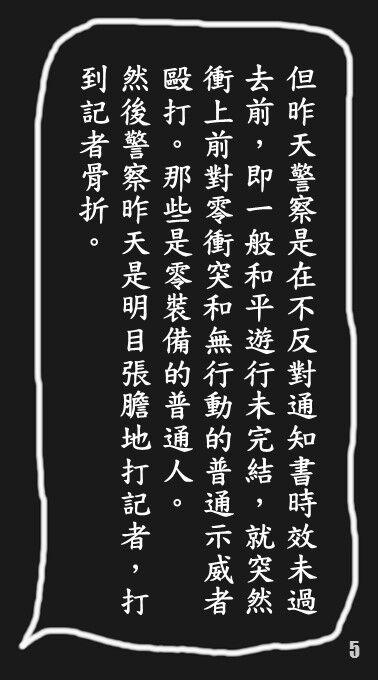 但昨天警察是在不反對通知書時效未過
去前，即一般和平遊行未完結，就突然
衝上前對零衝突和無行動的普通示威者
毆打。那些是零裝備的普通人。
然後警察昨天是明目張膽地打記者，打
到記者骨折。
5